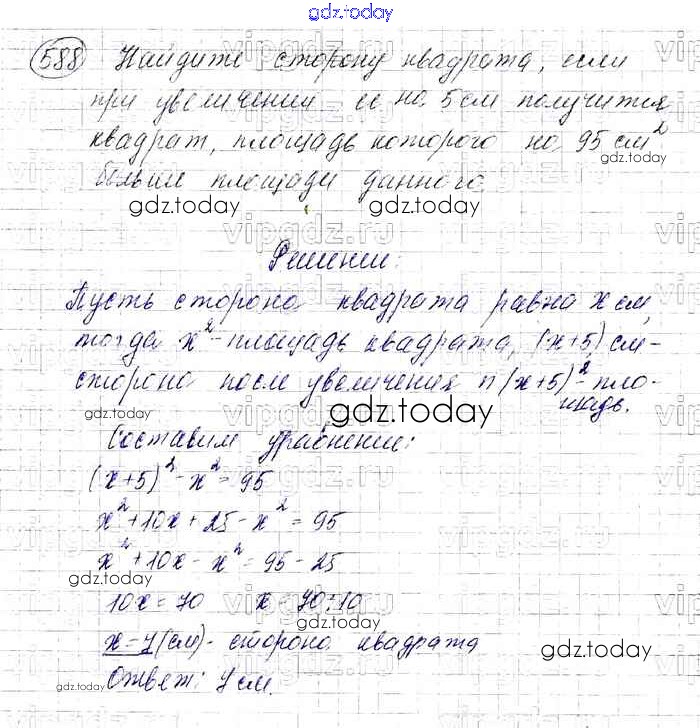 gdz.today
588 Найдите сторону квадрата, если
при увеличении ее на 5 см получится
квадрат, площадь которого на 95 см²
больше площади данного.
gdz.today
gdz.today
gdz.today
Решение:
Пусть сторона квадрата равна x см,
тогда x² - площадь квадрата, (x+5) см -
сторона после увеличения и (x+5)² - пло-
щадь.
gdz.today
gdz.today
Составим уравнение:
(x+5)² - x² = 95
x² + 10x + 25 - x² = 95
x² + 10x - x² = 95 - 25
gdz.today
10x = 70 x = 70:10
x = 7 (см) - сторона квадрата
gdz.today
Ответ: 7 см.
gdz.today
vipgdz.ru